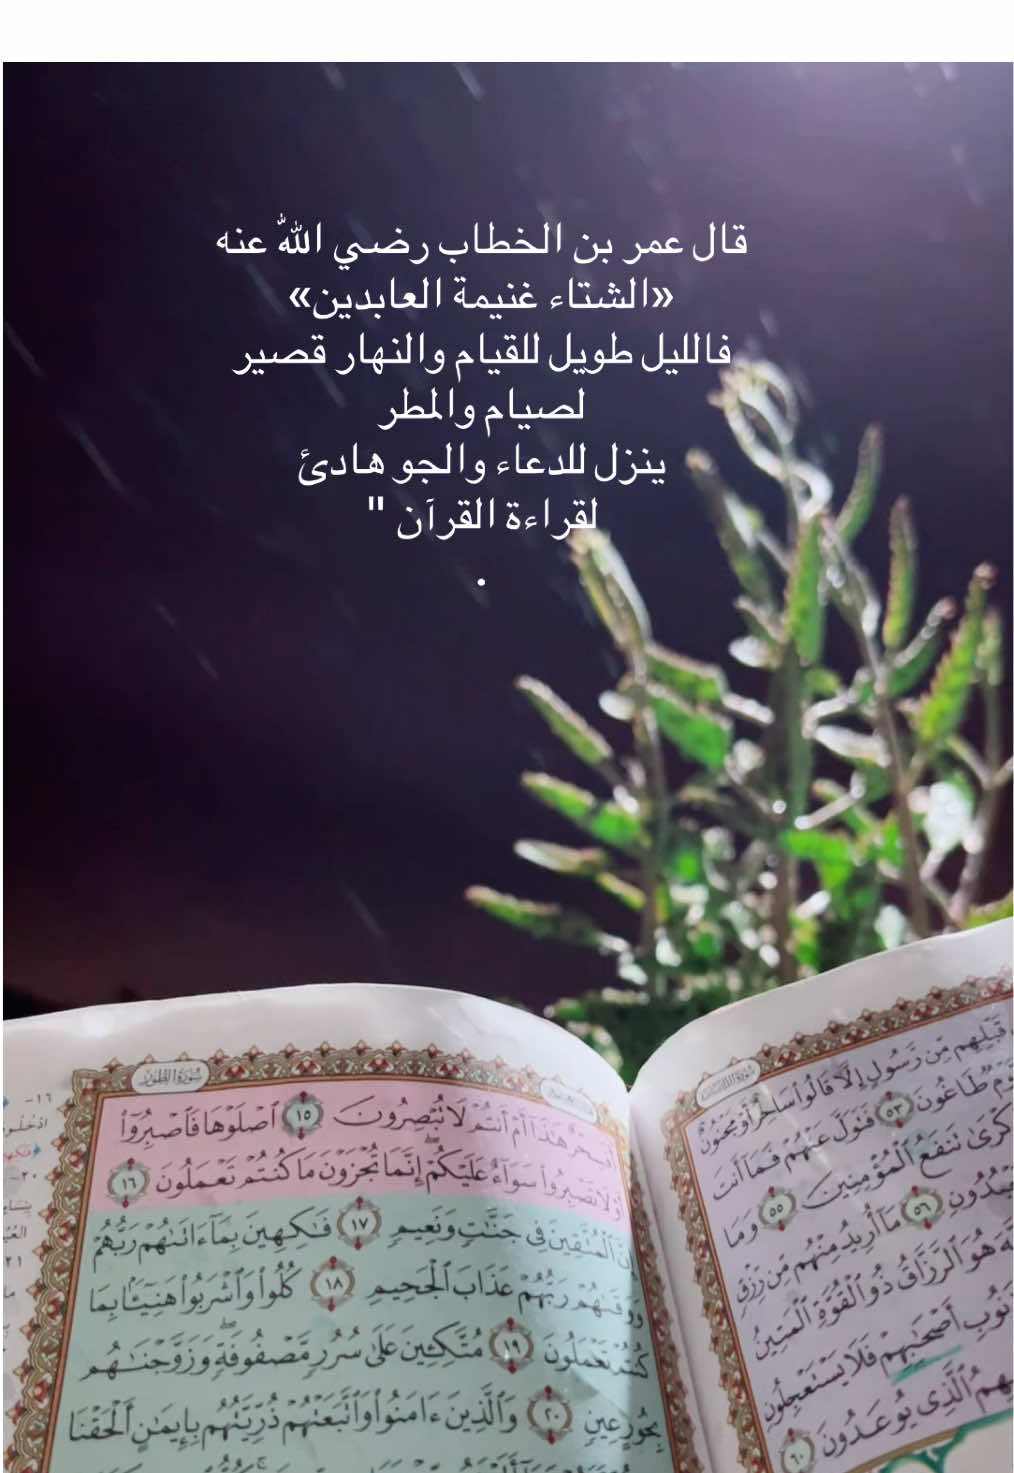 قال عمر بن الخطاب رضي الله عنه
«الشتاء غنيمة العابدين»
فالليل طويل للقيام والنهار قصير
لصيام والمطر
ينزل للدعاء والجو هادئ
لقراءة القرآن "
.
قَبْلِهِم مِّن رَّسُولٍ إِلَّا قَالُوا۟ سَاحِرٌ أَوْ مَجْنُونٌ
طَاغُونَ ٥٣ فَتَوَلَّ عَنْهُمْ فَمَآ أَنتَ
تَنفَعُ ٱلْمُؤْمِنِينَ ٥٥ وَمَا
٥٦ مَآ أُرِيدُ مِنْهُم مِّن رِّزْقٍ
هُوَ ٱلرَّزَّاقُ ذُو ٱلْقُوَّةِ ٱلْمَتِينُ
أَصْحَٰبِهِمْ فَلَا يَسْتَعْجِلُونِ
ٱلَّذِى يُوعَدُونَ ٦٠
سُورَةُ الطُّورِ
أَفَسِحْرٌ هَٰذَآ أَمْ أَنتُمْ لَا تُبْصِرُونَ ١٥ ٱصْلَوْهَا فَٱصْبِرُوٓا۟
أَوْ لَا تَصْبِرُوا۟ سَوَآءٌ عَلَيْكُمْ إِنَّمَا تُجْزَوْنَ مَا كُنتُمْ تَعْمَلُونَ ١٦
إِنَّ ٱلْمُتَّقِينَ فِى جَنَّٰتٍ وَنَعِيمٍ ١٧ فَٰكِهِينَ بِمَآ ءَاتَىٰهُمْ رَبُّهُمْ
وَوَقَىٰهُمْ رَبُّهُمْ عَذَابَ ٱلْجَحِيمِ ١٨ كُلُوا۟ وَٱشْرَبُوا۟ هَنِيٓـًٔۢا بِمَا
كُنتُمْ تَعْمَلُونَ ١٩ مُتَّكِـِٔينَ عَلَىٰ سُرُرٍ مَّصْفُوفَةٍ وَزَوَّجْنَٰهُم
بِحُورٍ عِينٍ ٢٠ وَٱلَّذِينَ ءَامَنُوا۟ وَٱتَّبَعَتْهُمْ ذُرِّيَّتُهُم بِإِيمَٰنٍ أَلْحَقْنَا